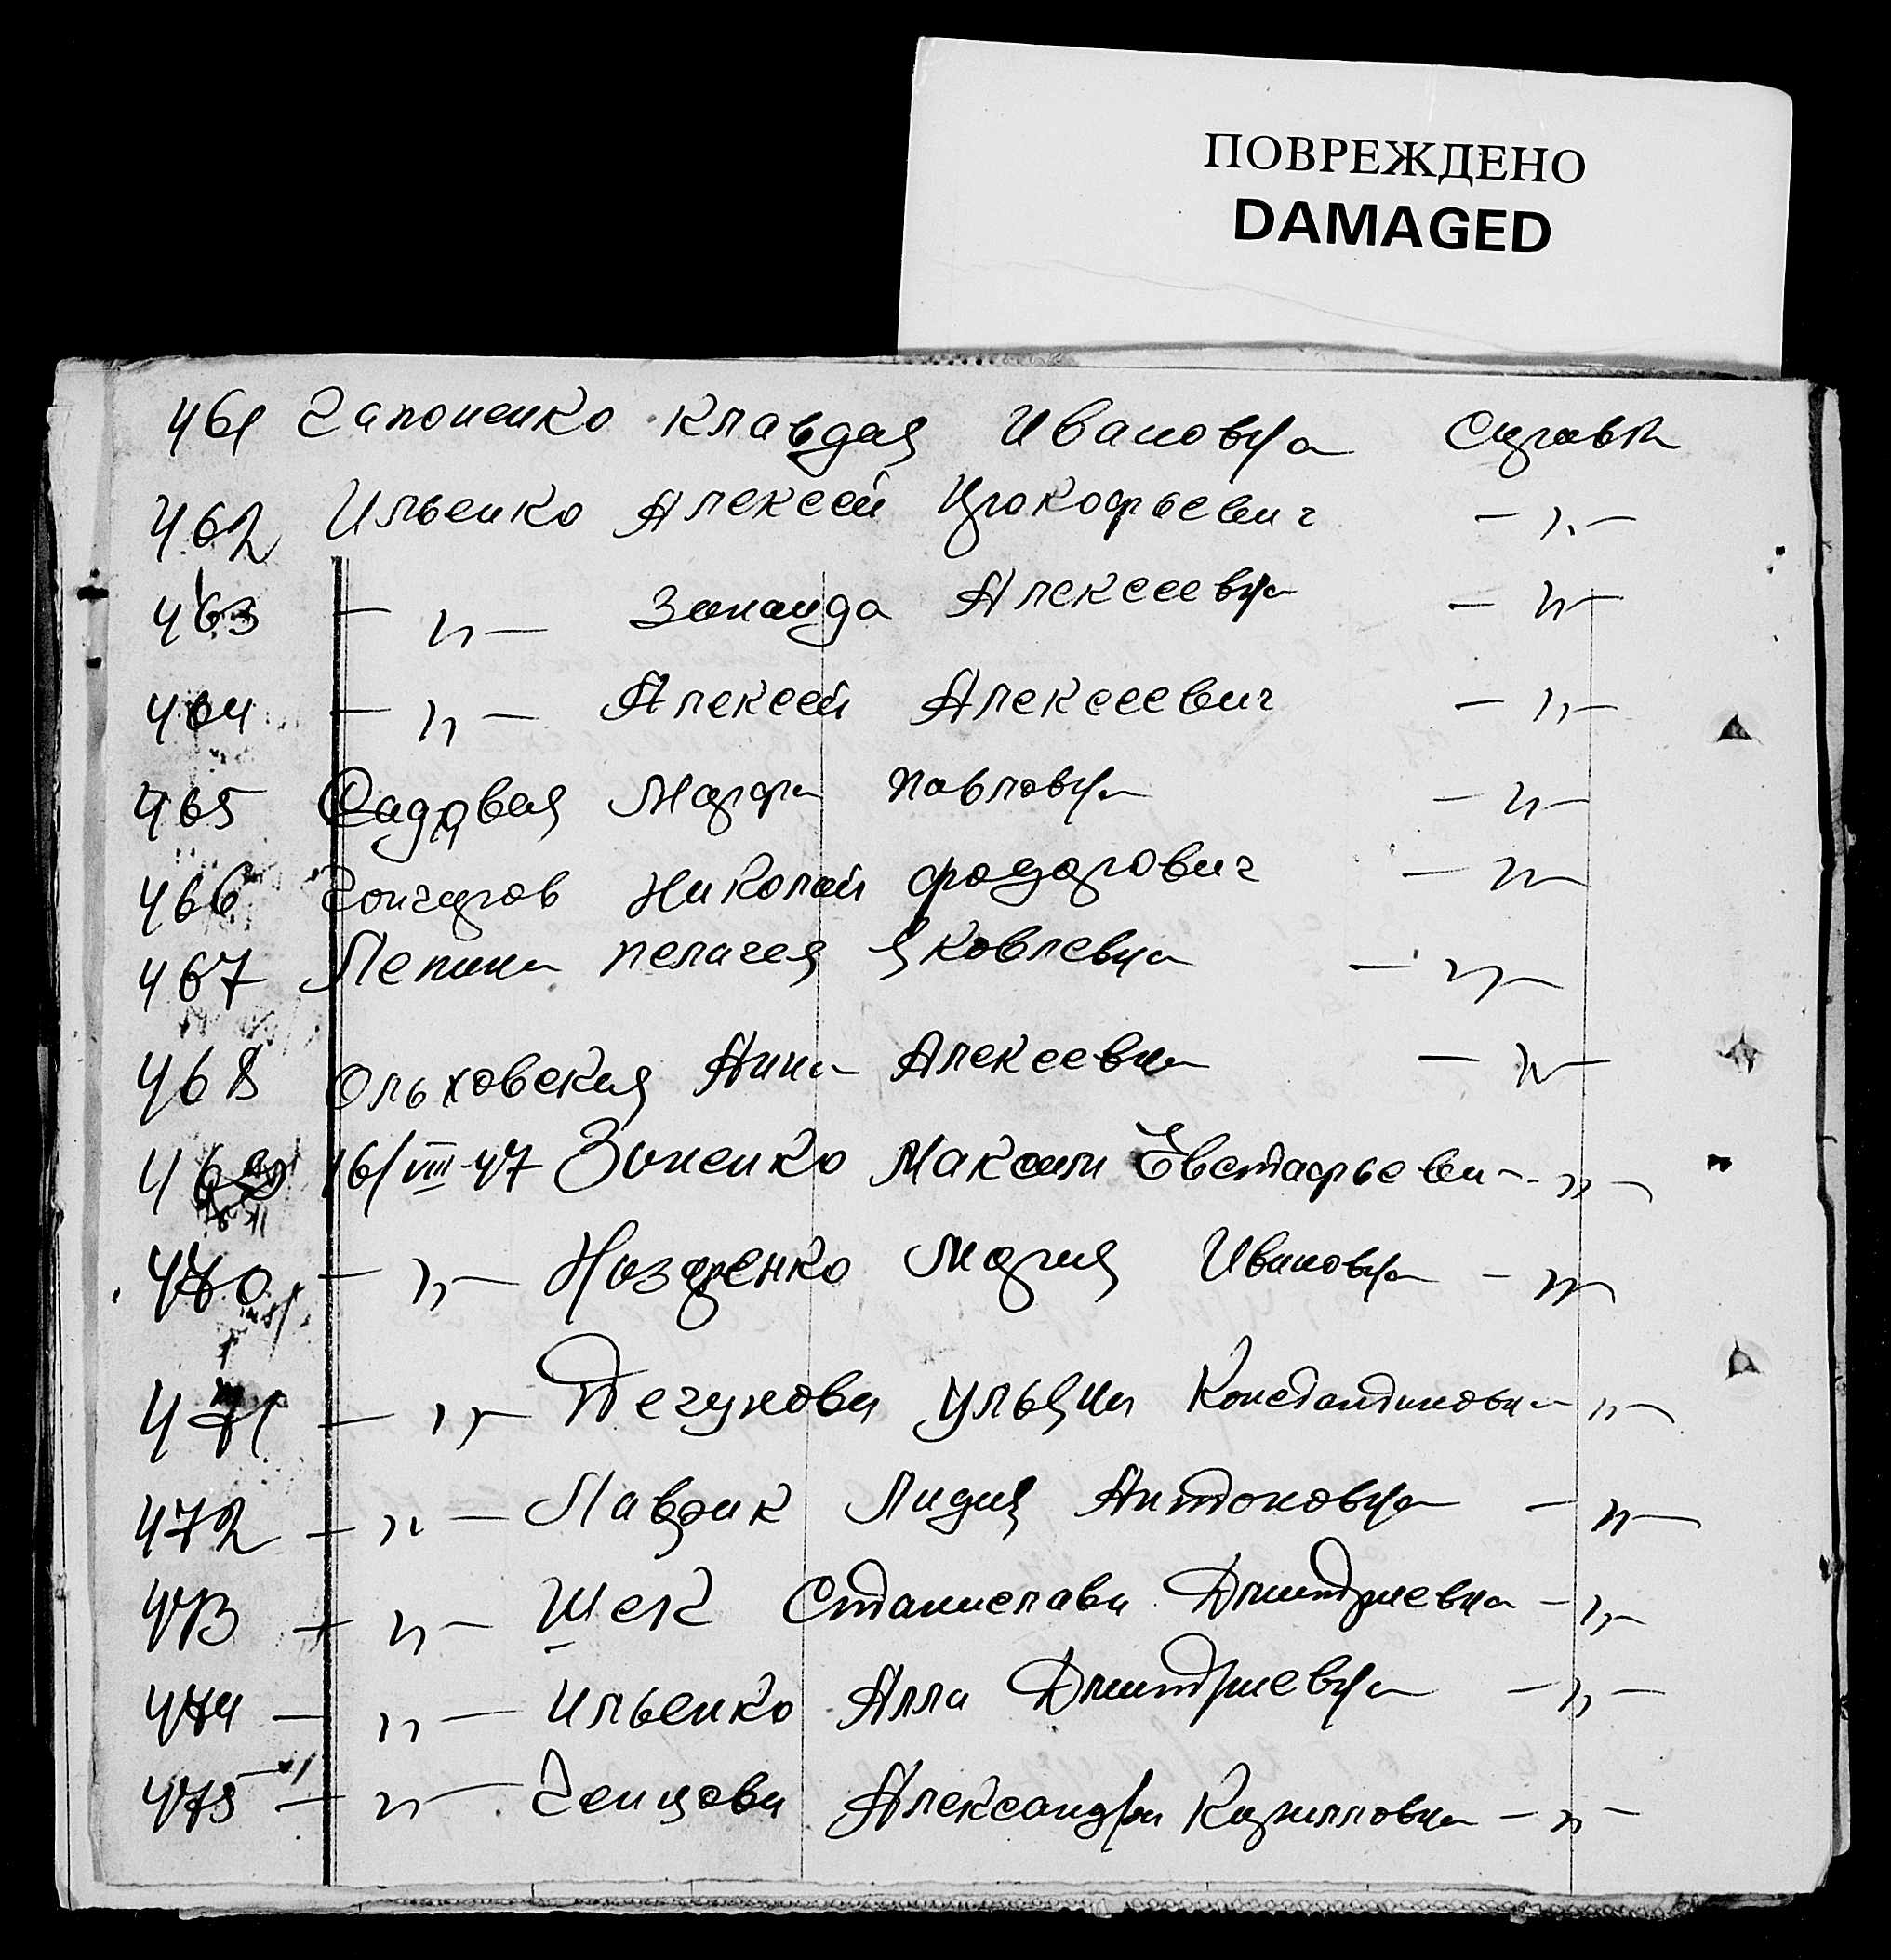 ПОВРЕЖДЕНО
DAMAGED
461 Гапоненко Клавдия Ивановна Справка
462 Ильенко Алексей Прокофьевич - " -
463 - " - Зинаида Алексеевна - " -
464 - " - Алексей Алексеевич - " -
465 Садовая Марфа Павловна - " -
466 Гончаров Николай Федорович - " -
467 Лепина Пелагея Яковлевна - " -
468 Ольховская Анна Алексеевна - " -
469 16/VIII-47 Зиненко Максим Евстафьеви - " -
470 - " - Назаренко Мария Ивановна - " -
471 - " - Ульяна Константиновна - " -
472 - " - Лаврик Лидия Антоновна - " -
473 - " - Шек Станислава Дмитриевна - " -
474 - " - Ильенко Алла Дмитриевна - " -
475 - " - Ченцова Александра Кирилловна - " -